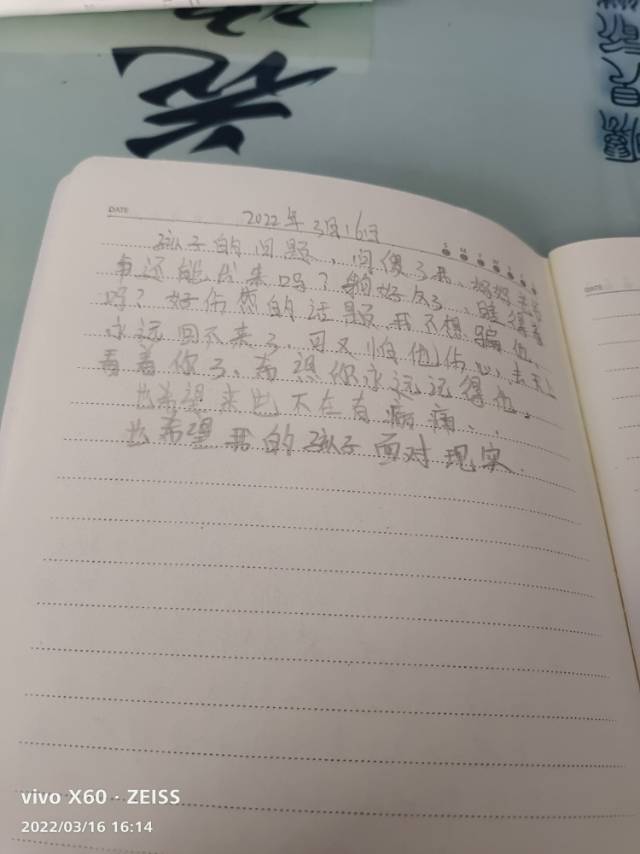 DATE
2022年3月16日
孩子的问题,问傻了我,妈妈去了
还能出来吗?躺好久了,睡得着
吗?好伤感的话题,我不想骗他,
永远回不来了,可又怕他伤心,去天上
看着你了,希望你永远记得他。
也希望来世不在有病痛、
也希望我的孩子面对现实
DATE
vivo X60 · ZEISS
2022/03/16 16:14